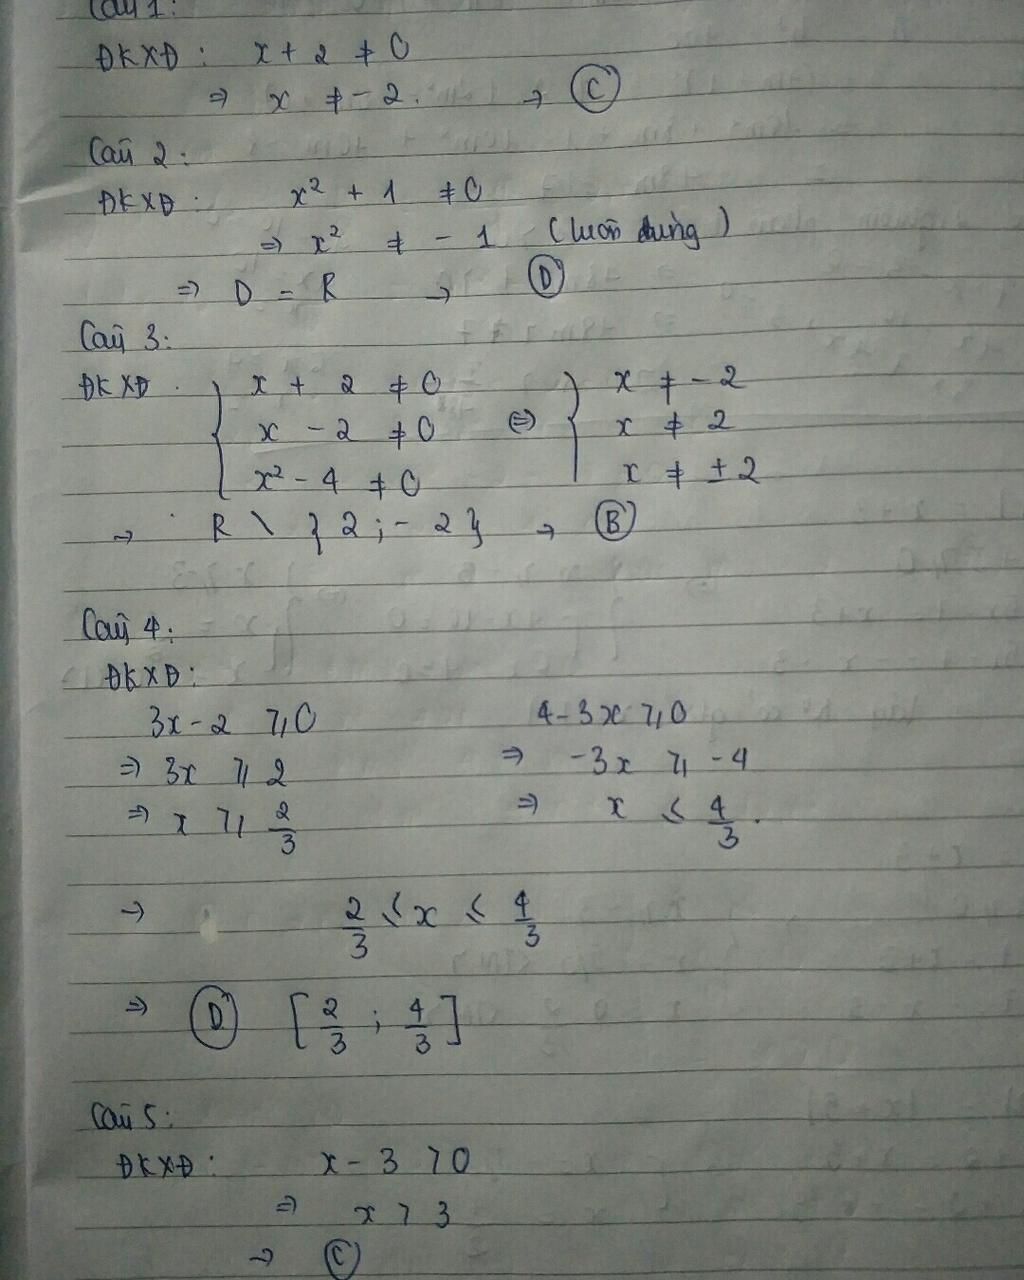 Câu 1:
ĐKXĐ: x + 2 ≠ 0
⇒ x ≠ -2. → C
Câu 2:
ĐKXĐ: x² + 1 ≠ 0
⇒ x² ≠ - 1 (luôn đúng)
⇒ D = R → D
Câu 3:
ĐKXĐ: { x + 2 ≠ 0 ⇔ { x ≠ -2
x - 2 ≠ 0 x ≠ 2
x² - 4 ≠ 0 x ≠ ±2
→ R \ { 2 ; -2 } → B
Câu 4:
ĐKXĐ:
3x - 2 ≥ 0 4 - 3x ≥ 0
⇒ 3x ≥ 2 ⇒ -3x ≥ -4
⇒ x ≥ 2/3 ⇒ x ≤ 4/3.
→ 2/3 ≤ x ≤ 4/3
⇒ D [2/3 ; 4/3]
Câu 5:
ĐKXĐ: x - 3 > 0
⇒ x > 3
→ C